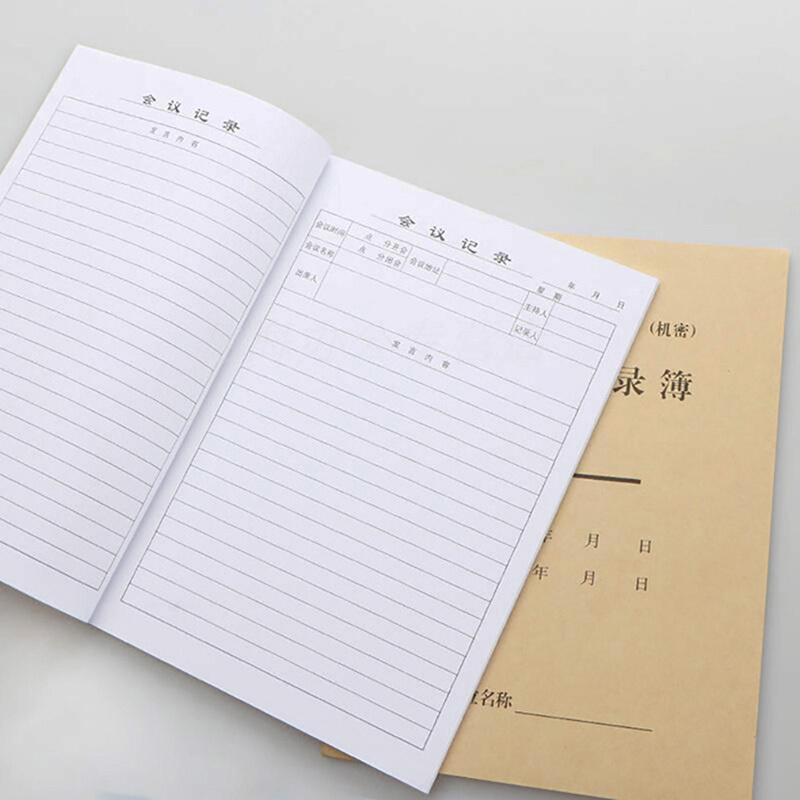 会议记录
发言内容
会议记录
年 月 日
会议时间 点 分召会 会议地址 星期
会议名称 点 分闭会 主持人
出席人 记录人
发言内容
（机密）
录簿
年 月 日
年 月 日
名称